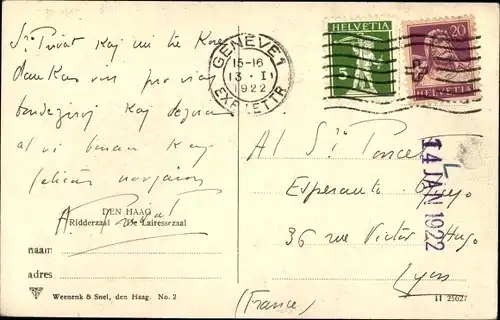 HELVETIA
5
20
HELVETIA
GENÈVE 1
15-16
13 · I
1922
EXP. LETTR
Sro Privat kaj mi tre kore
dankas vin pro viaj
bondeziroj kaj deziras
al vi bonan kaj
feliĉan novjaron
A. Privat
DEN HAAG
Ridderzaal De Lairessezaal
naam
adres
Weenenk & Snel, den Haag. No. 2
Al Sro Poncet
Esperanto
36 rue Victor Hugo
Lyon
(France)
14 JAN 1922
11 25627